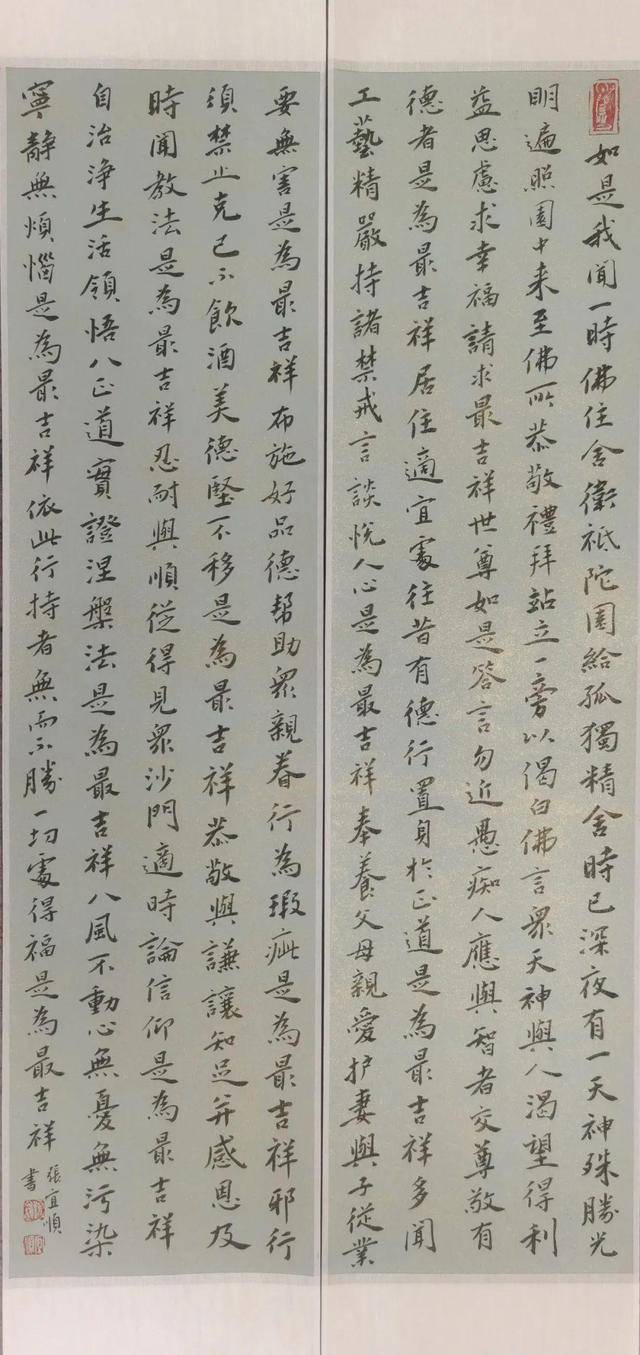 如是我闻一時佛住舍衛祇陀園給孤獨精舍時已深夜有一天神殊勝光
明遍照園中来至佛所恭敬禮拜站立一旁以偈白佛言眾天神與人渴望得利
益思慮求幸福請求最吉祥世尊如是答言勿近愚痴人應與智者交尊敬有
德者是為最吉祥居住適宜處往昔有德行置身於正道是為最吉祥多聞
工藝精嚴持諸禁戒言談悅人心是為最吉祥奉養父母親愛护妻與子從業
要無害是為最吉祥布施好品德幫助眾親眷行為瑕疵是為最吉祥邪行
須禁止克己不飲酒美德堅不移是為最吉祥恭敬與謙讓知足并感恩及
時聞教法是為最吉祥忍耐與順從得見眾沙門適時論信仰是為最吉祥
自治淨生活領悟八正道實證涅槃法是為最吉祥八風不動心無憂無污染
寧靜無煩惱是為最吉祥依此行持者無而不勝一切處得福是為最吉祥
張宜順
書